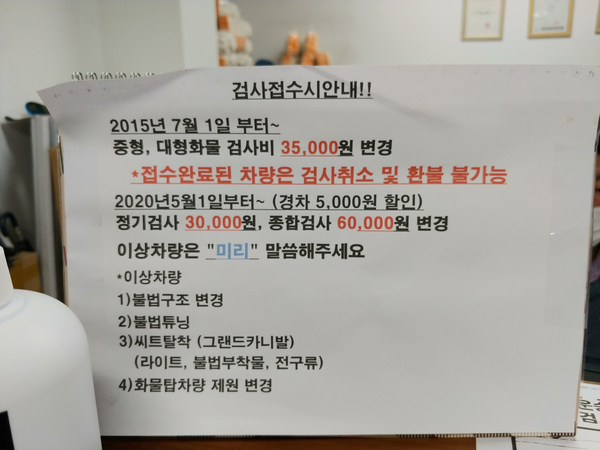 검사접수시안내!!
2015년 7월 1일 부터~
중형, 대형화물 검사비 35,000원 변경
*접수완료된 차량은 검사취소 및 환불 불가능
2020년5월1일부터~ (경차 5,000원 할인)
정기검사 30,000원, 종합검사 60,000원 변경
이상차량은 "미리" 말씀해주세요
*이상차량
1)불법구조 변경
2)불법튜닝
3)씨트탈착 (그랜드카니발)
(라이트, 불법부착물, 전구류)
4)화물탑차량 제원 변경